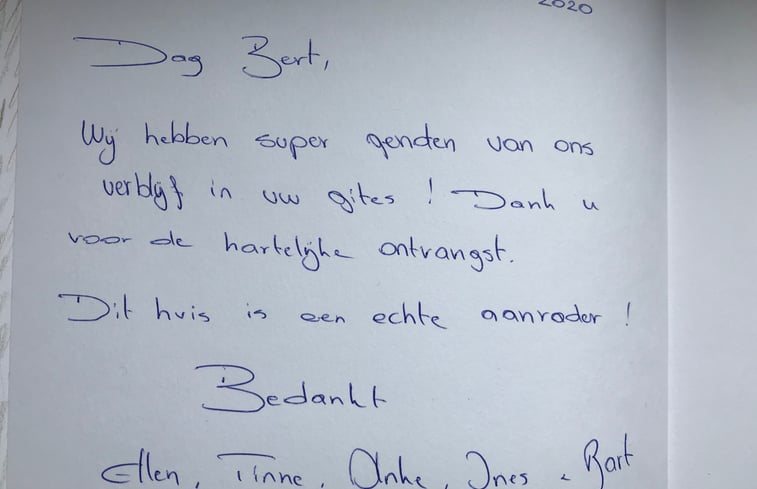 2020
Dag Bert,
Wij hebben super genden van ons
verblijf in uw gites ! Dank u
voor de hartelijke ontvangst.
Dit huis is een echte aanrader !
Bedankt
Ellen, Tinne, Anke, Ines & Bart